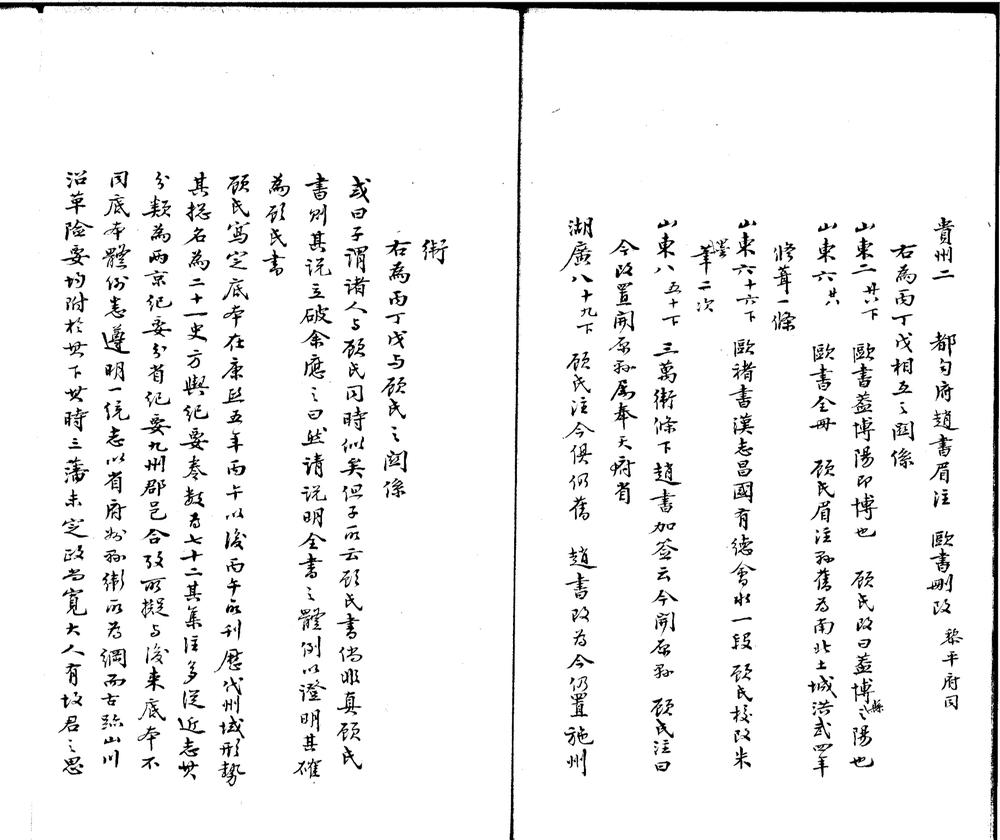 貴州二 都勻府趙書眉注 歐書刪改 黎平府同
右為丙丁戊相互之關係
山東二 廿六下 歐書蓋博陽即博也 顧氏改曰蓋博縣之陽也
山東六 廿六 歐書全冊 顧氏眉注縣舊為南北土城洪武四年
修葺一條
山東六 十六下 歐褚書漢志昌國有德會水一段 顧氏校改朱
墨筆二次
山東八 五十下 三萬衛條下趙書加簽云今開原縣 顧氏注曰
今改置開原縣屬奉天府省
湖廣八 十九下 顧氏注今俱仍舊 趙書改為今仍置施州
衛
右為丙丁戊與顧氏之關係
或曰子謂諸人與顧氏同時似矣但子所云顧氏書倘非真顧氏
書則其說立破余應之曰然請說明全書之體例以證明其確
為顧氏書
顧氏寫定底本在康熙五年丙午以後丙午所刊歷代州域形勢
其總名為二十一史方輿紀要卷數為七十二其集注多從近志其
分類為兩京紀要分省紀要九州郡邑合攷所擬與後來底本不
同底本體例悉遵明一統志以省府州縣衛所為綱而古跡山川
沿革險要均附於其下其時三藩未定政尚寬大人有故君之思